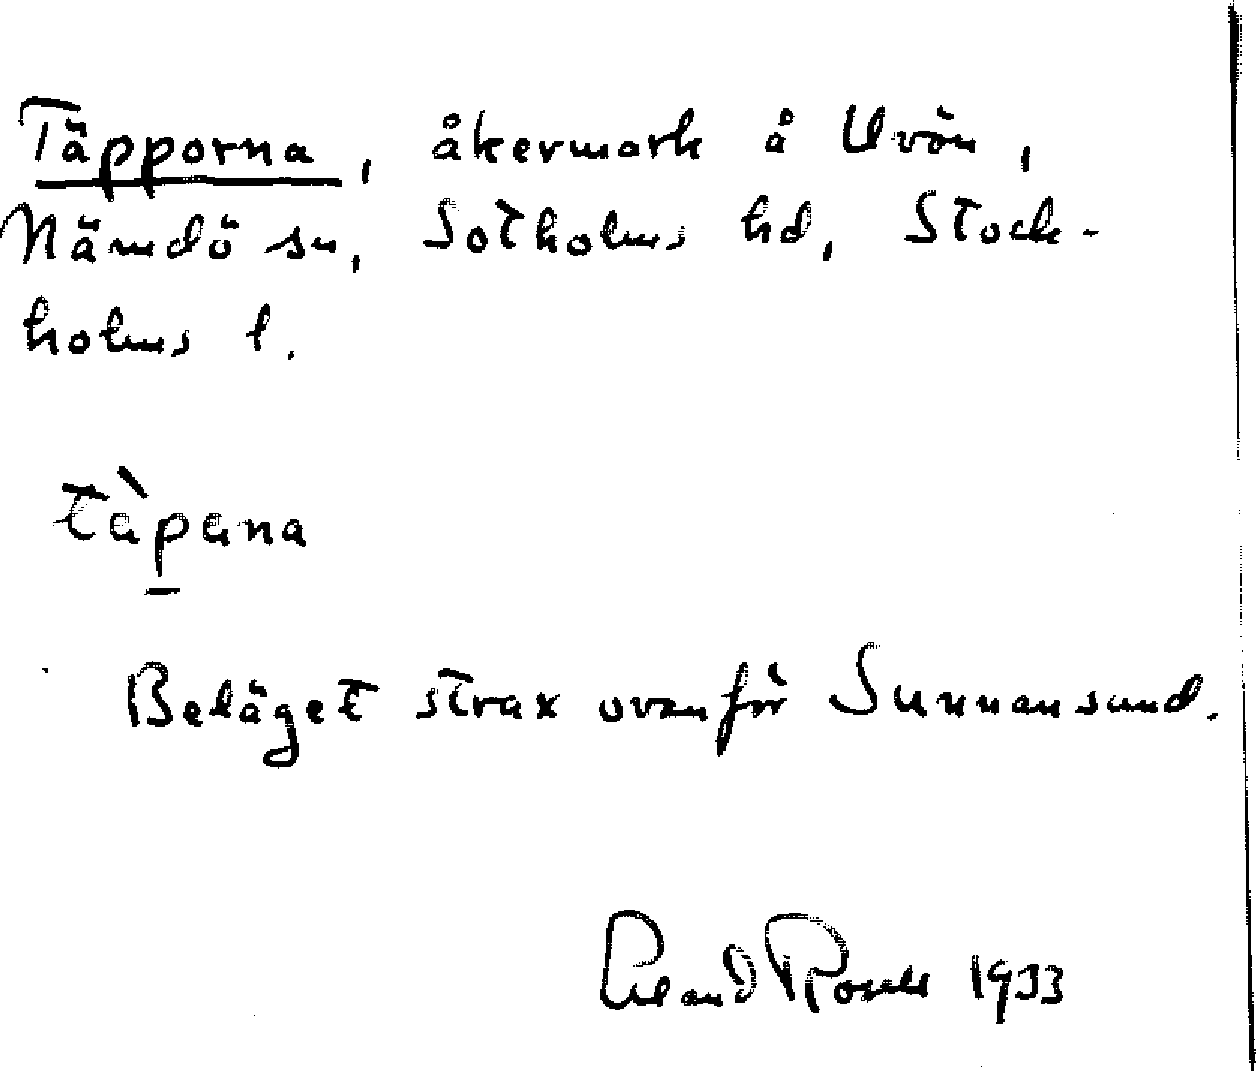 Täpporna, åkermark å Uvön,
Nämdö sn, Sotholms hd, Stock-
holms l.
tàpana
Beläget strax ovanför Sunnansund.
Erland Rosell 1933